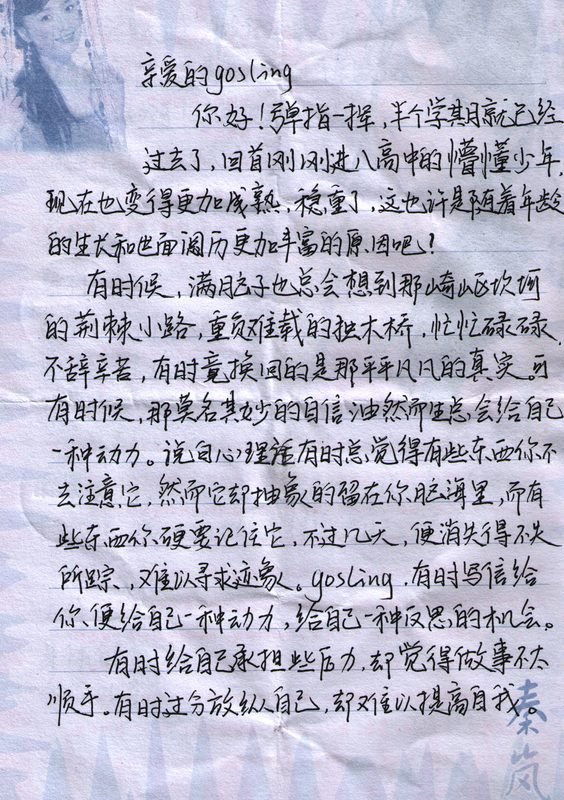 亲爱的gosling
你好！弹指一挥，半个学期就已经
过去了，回首刚刚进入高中的懵懂少年，
现在也变得更加成熟、稳重了，这也许是随着年龄
的生长和世面阅历更加丰富的原因吧？
有时候，满脑子也总会想到那崎岖坎坷
的荆棘小路，重负难载的独木桥，忙忙碌碌，
不辞辛苦，有时竟换回的是那平平凡凡的真实。可
有时候，那莫名其妙的自信油然而生总会给自己
一种动力。说白心理话有时总觉得有些东西你不
去注意它，然而它却抽象的留在你脑海里，而有
些东西你硬要记住它，不过几天，便消失得不失
所踪，难以寻求迹象。gosling，有时写信给
你，便给自己一种动力，给自己一种反思的机会。
有时给自己承担些压力，却觉得做事不太
顺手。有时过分放纵自己，却难以提高自我。
秦岚